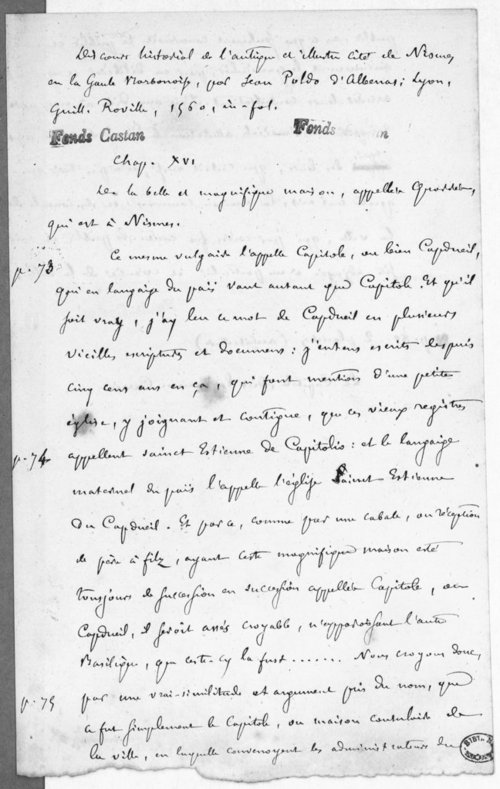 Discours historial de l'antique et illustre cité de Nismes,
en la Gaule Narbonoise, par Jean Poldo d'Albenas; Lyon,
Guill. Roville, 1560, in-fol.
Fonds Castan
Fonds n
Chap. XVI
De la belle et magnifique maison, appellée
qui est à Nismes.
p. 73
Ce mesme vulgaire l'appelle Capitole, ou bien Capdueil,
qui en langaige du païs vaut autant que Capitole. Et qu'il
soit vray, j'ay leu ce mot de Capdueil en plusieurs
vieilles escriptures et documens: j'entens escrits despuis
cinq cens ans en ça, qui font mention d'une petite
église, y joignant et contigue, que ces vieux registres
p. 74
appellent sainct Estienne de Capitolio: et le langaige
maternel du païs l'appelle l'église Sainct Estienne
du Capdueil. Et par ce, comme par une cabale, ou réception
de père à filz, ayant ceste magnifique maison esté
tousjours de succession en succession appellée Capitole, ou
Capdueil, il seroit assés croyable, n'apparoissant l'autre
Basilique, que ceste-cy la fust ....... Nous croyons donc,
p. 75
par une vrai-similitude et argument pris du nom, que
a fut simplement le Capitole, ou maison consulaire de
la ville, en laquelle convenoyent les administrateurs du